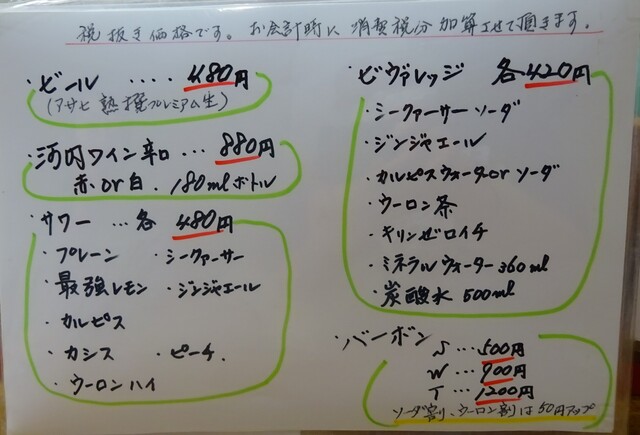 税抜き価格です。お会計時に消費税分加算させて頂きます。
・ビール ‥‥ 480円
(アサヒ 熟撰プレミアム生)
・河内ワイン辛口 … 880円
赤 or 白. 180mlボトル
・サワー … 各 480円
・プレーン ・シークァーサー
・最強レモン ・ジンジャエール
・カルピス
・カシス ・ピーチ.
・ウーロンハイ
・ビヴァレッジ 各420円
・シークァーサーソーダ
・ジンジャエール
・カルピスウォーター or ソーダ
・ウーロン茶
・キリンゼロイチ
・ミネラルウォーター 360ml
・炭酸水 500ml
・バーボン
S … 500円
W … 900円
T … 1200円
ソーダ割、ウーロン割は50円アップ